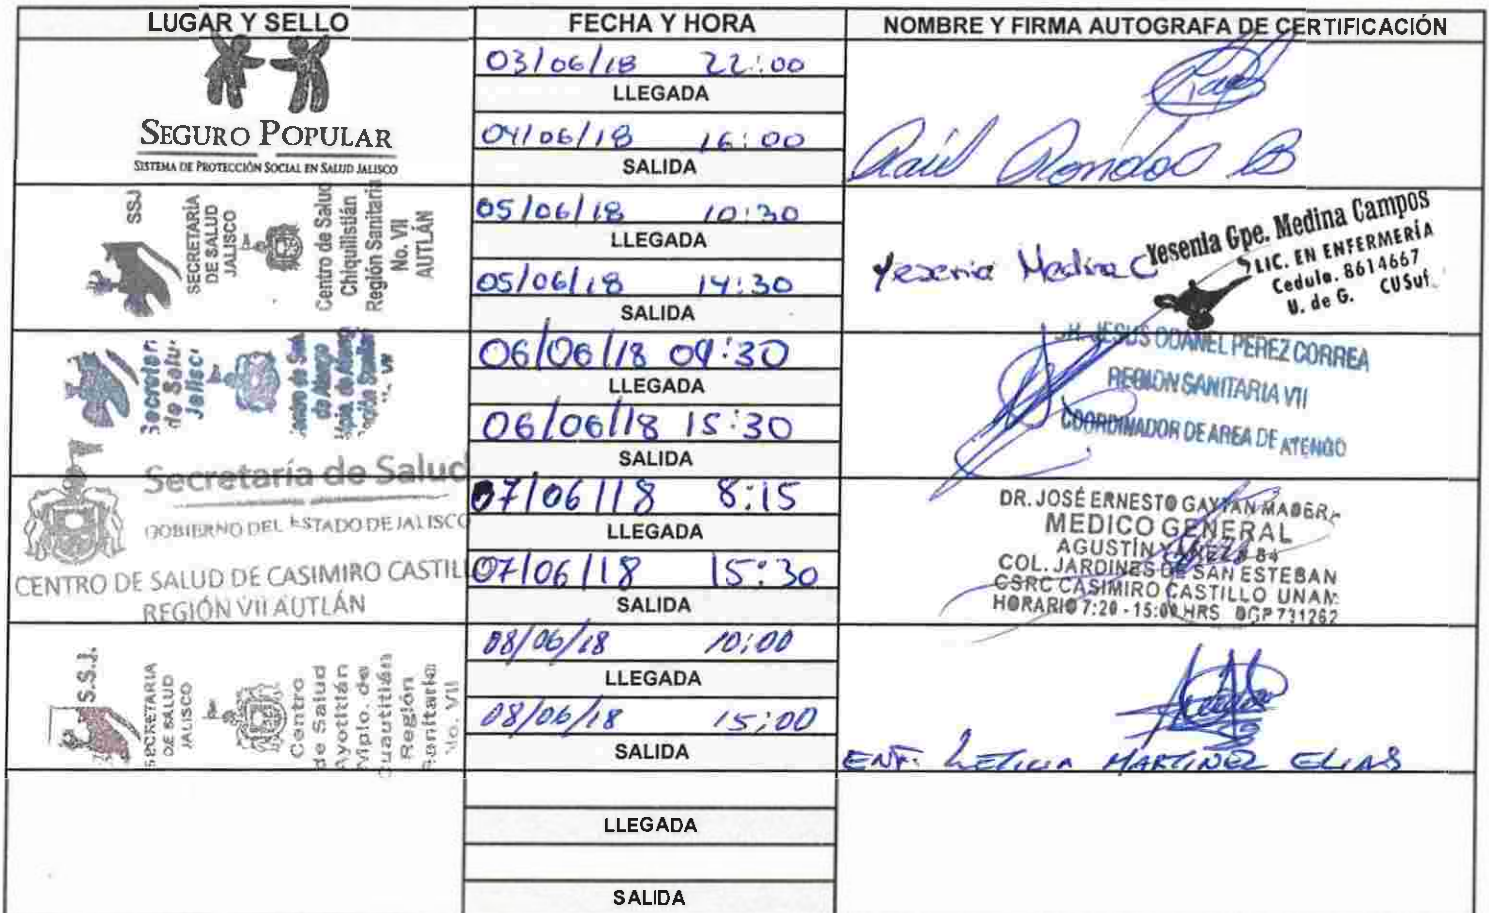 LUGAR Y SELLO
FECHA Y HORA
NOMBRE Y FIRMA AUTOGRAFA DE CERTIFICACIÓN
SEGURO POPULAR
SISTEMA DE PROTECCIÓN SOCIAL EN SALUD JALISCO
03/06/18 22:00
LLEGADA
04/06/18 16:00
SALIDA
Raúl B
SSJ
SECRETARÍA
DE SALUD
JALISCO
Centro de Salud
Chiquilistlán
Región Sanitaria
No. VII
AUTLÁN
05/06/18 10:30
LLEGADA
05/06/18 14:30
SALIDA
Yesenia Medina C
Yesenia Gpe. Medina Campos
LIC. EN ENFERMERÍA
Cedula. 8614667
U. de G. CUSur.
de Salu
Jalisc
de Atengo
06/06/18 09:30
LLEGADA
06/06/18 15:30
SALIDA
JESUS ODANEL PEREZ CORREA
REGION SANITARIA VII
COORDINADOR DE AREA DE ATENGO
Secretaría de Salud
GOBIERNO DEL ESTADO DE JALISCO
CENTRO DE SALUD DE CASIMIRO CASTILL
REGIÓN VII AUTLÁN
07/06/18 8:15
LLEGADA
07/06/18 15:30
SALIDA
DR. JOSÉ ERNESTO GAYTAN MADER
MEDICO GENERAL
AGUSTÍN YAÑEZ # 84
COL. JARDINES DE SAN ESTEBAN
CSRC CASIMIRO CASTILLO UNAM
HORARIO 7:20 - 15:00 HRS DGP 731262
S.S.J.
SECRETARIA
DE SALUD
JALISCO
Centro
de Salud
Ayotitlán
Mplo. de
Cuautitlán
Región
Sanitaria
No. VII
08/06/18 10:00
LLEGADA
08/06/18 15:00
SALIDA
ENF. LETICIA MARTINEZ ELIAS
LLEGADA
SALIDA